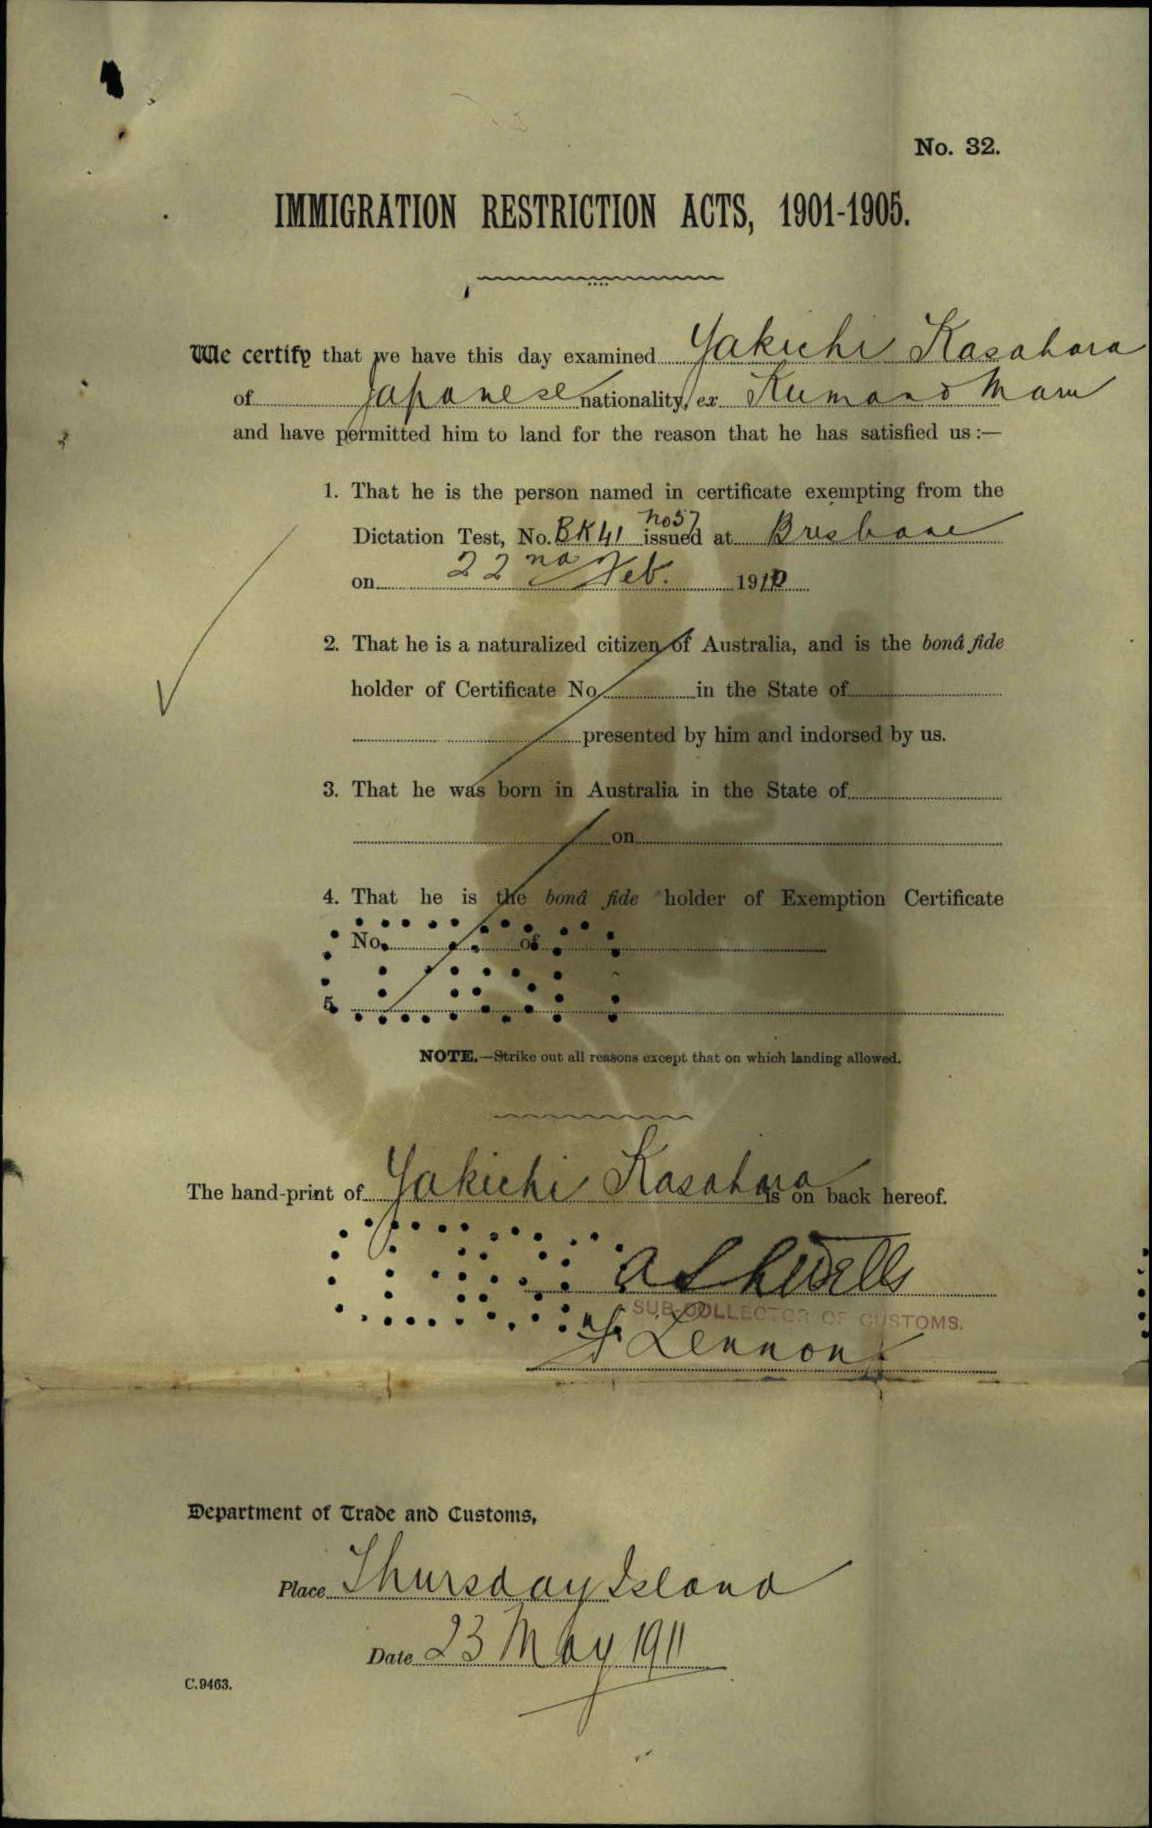 No. 32.
IMMIGRATION RESTRICTION ACTS, 1901-1905.
We certify that we have this day examined Yakichi Kasahara
of Japanese nationality, ex Kumano Maru
and have permitted him to land for the reason that he has satisfied us :—
1. That he is the person named in certificate exempting from the
Dictation Test, No. BK 41 No 57 issued at Brisbane
on 22nd Feb. 1910
2. That he is a naturalized citizen of Australia, and is the bonâ fide
holder of Certificate No. in the State of
presented by him and indorsed by us.
3. That he was born in Australia in the State of
on
4. That he is the bonâ fide holder of Exemption Certificate
No. of
5.
NOTE.—Strike out all reasons except that on which landing allowed.
The hand-print of Yakichi Kasahara is on back hereof.
SUB-COLLECTOR OF CUSTOMS.
Lennon
Department of Trade and Customs,
Place Thursday Island
Date 23 May 1911
C.9463.